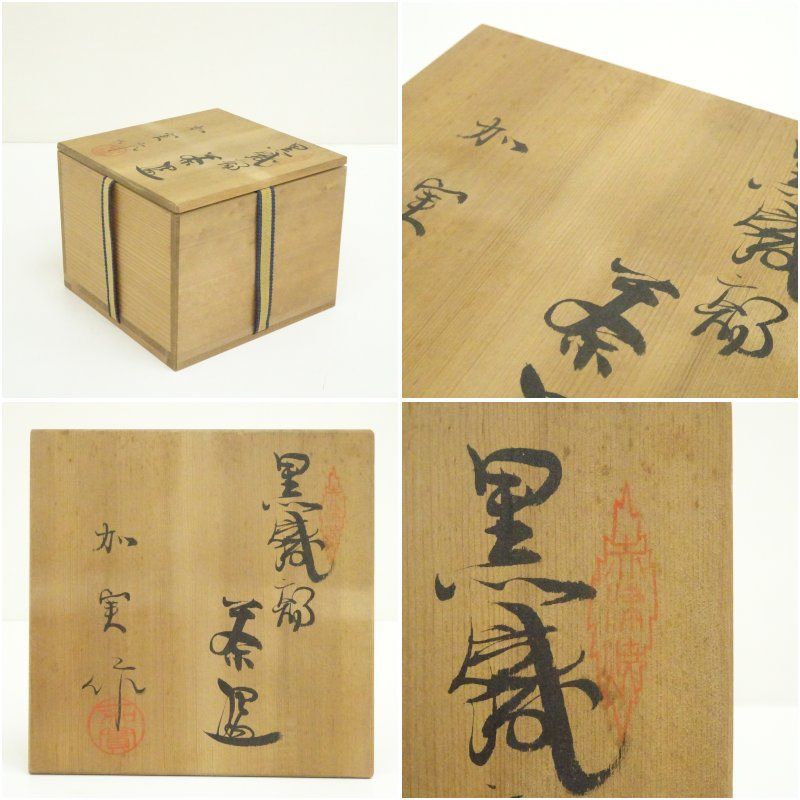 黒織部
茶碗
加実作
加
実
黒織部
茶
黒織部
茶碗
加実作
黒織